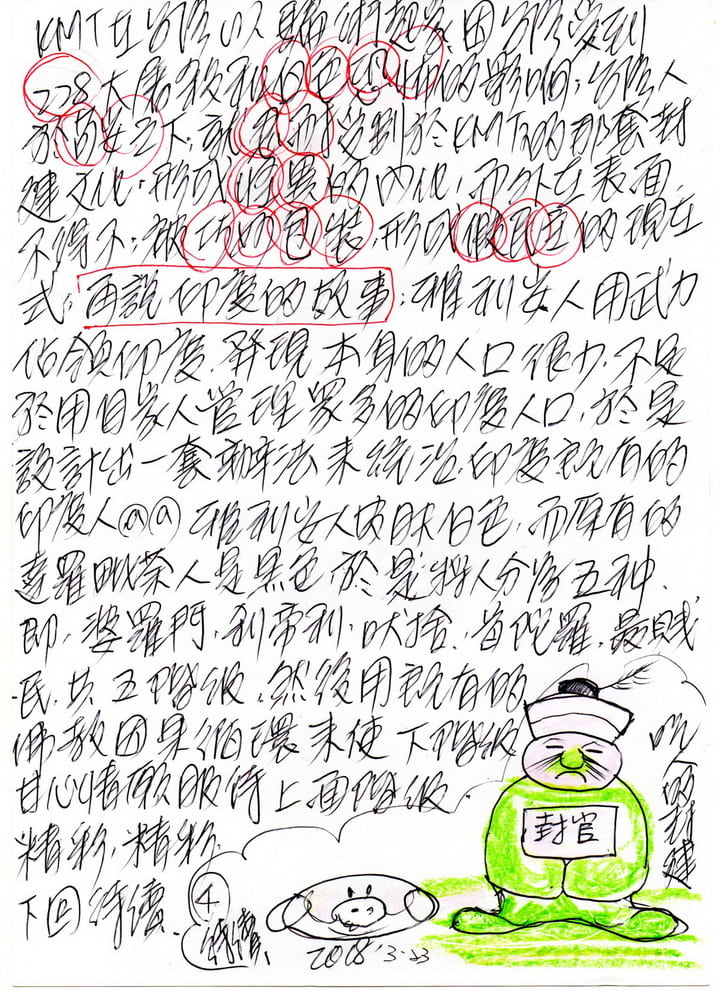 KMT在台灣以騙術起家,因台灣受到
228大屠殺和白色恐怖的影响;台灣人
於高壓之下,就受到於KMT的那套封
建文化,形成的内化,而外在表面,
不得不,被巧妙包裝,形成假民主的現在
式;再說印度的故事:雅利安人用武力
佔領印度,發現本身的人口很少,不足
於用自家人管理眾多的印度人口,於是
設計出一套辦法來統治印度就有的
印度人 雅利安人皮膚白色,而原有的
達羅毗荼人是黑色於是將人分為五种,
即,婆羅門,刹帝利,吠捨,首陀羅,最賎
民,共五階級,然後用就有的
佛教因果循環來使下階級
甘心情願服侍上面階級,
精彩,精彩,
下回待續. ④
待續,
2008'3-23
封官
吃人的封建